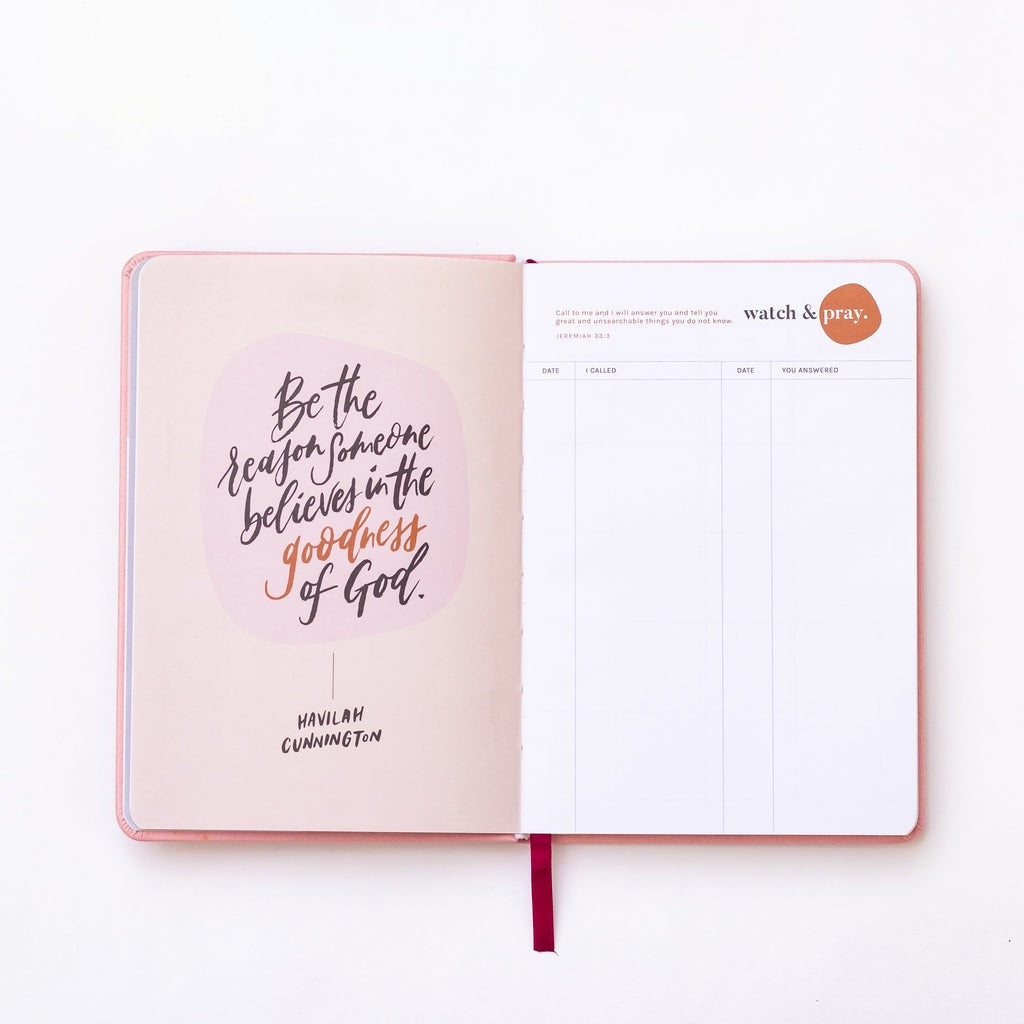 Be the
reason someone
believes in the
goodness
of God.
HAVILAH
CUNNINGTON
Call to me and I will answer you and tell you
great and unsearchable things you do not know.
JEREMIAH 33:3
watch & pray.
DATE I CALLED DATE YOU ANSWERED